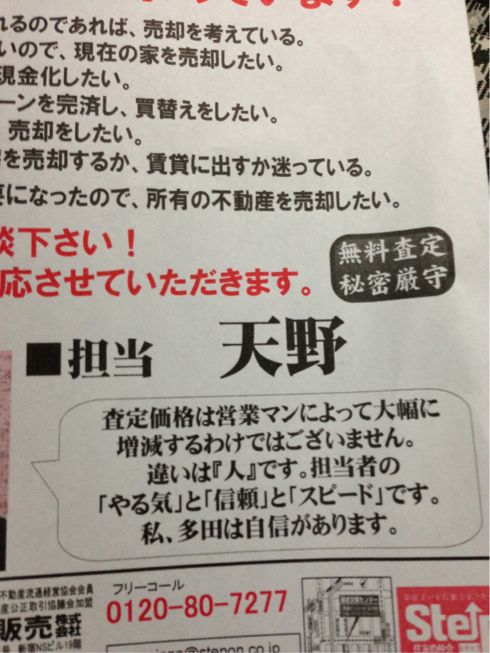 れるのであれば、売却を考えている。
いので、現在の家を売却したい。
現金化したい。
ーンを完済し、買替えをしたい。
売却をしたい。
を売却するか、賃貸に出すか迷っている。
要になったので、所有の不動産を売却したい。
談下さい！
応させていただきます。
無料査定
秘密厳守
■担当 天野
査定価格は営業マンによって大幅に
増減するわけではございません。
違いは『人』です。担当者の
「やる気」と「信頼」と「スピード」です。
私、多田は自信があります。
不動産流通経営協会会員
産公正取引協議会加盟
販売株式会社
号 新宿NSビル19階
フリーコール
0120-80-7277
@stepon.co.jp
Step